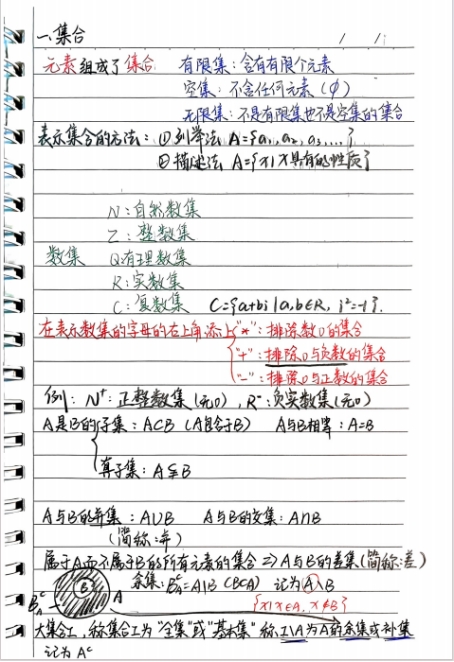 一.集合
元素组成了集合 有限集：含有有限个元素
空集：不含任何元素（∅）
无限集：不是有限集也不是空集的集合
表示集合的方法：①列举法 A={a₁, a₂, a₃, ...}
②描述法 A={x|x具有的性质}
N：自然数集
Z：整数集
数集 Q：有理数集
R：实数集
C：复数集 C={a+bi|a,b∈R, i²=-1}.
在表示数集的字母的右上角添上"*"：排除数0的集合
"+"：排除0与负数的集合
"-"：排除0与正数的集合
例：N⁺：正整数集(无0)，R⁻：负实数集(无0)
A是B的子集：A⊂B（A包含于B） A与B相等：A=B
真子集：A⫋B
A与B的并集：A∪B A与B的交集：A∩B
(简称：并)
属于A而不属于B的所有元素的集合 ⇒ A与B的差集(简称：差)
余集：Bᶜ_A=A\B (B⊂A) 记为A\B
B A Bᶜ_A {x|x∈A, x∉B}
大集合I，称集合I为"全集"或"基本集" 称I\A为A的余集或补集
记为Aᶜ